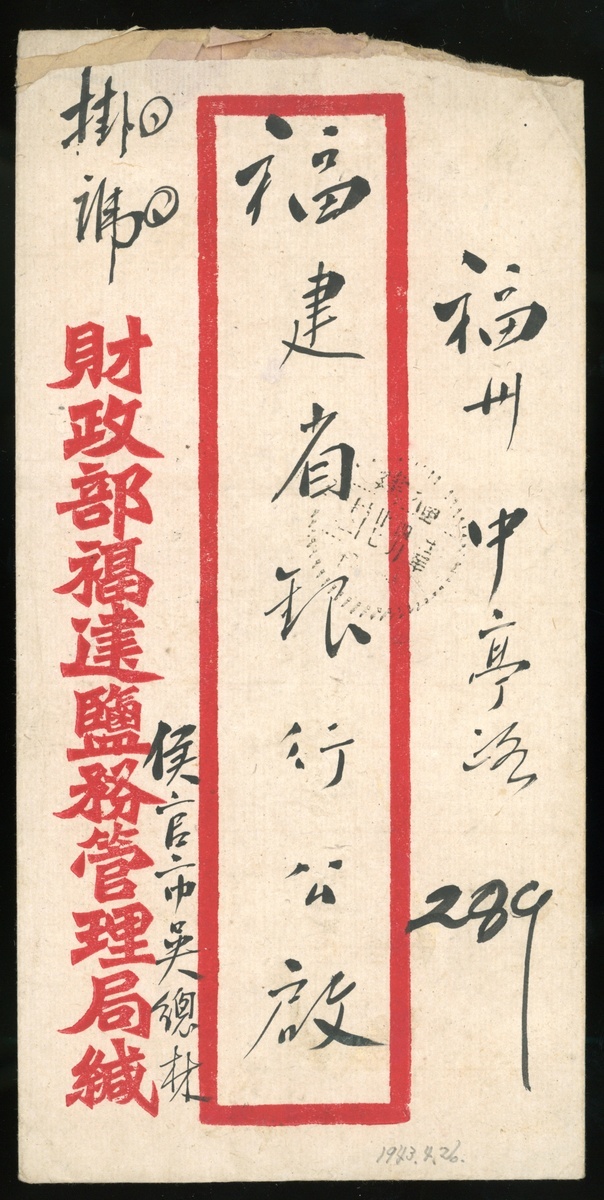 福州中亭路
289
福建省銀行公啟
掛號
財政部福建鹽務管理局緘
侯官市吳總林
1943.4.26.